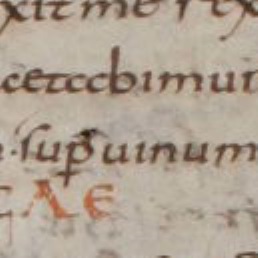 xit me rex
cetccbimui
sup̄ uinum
AE